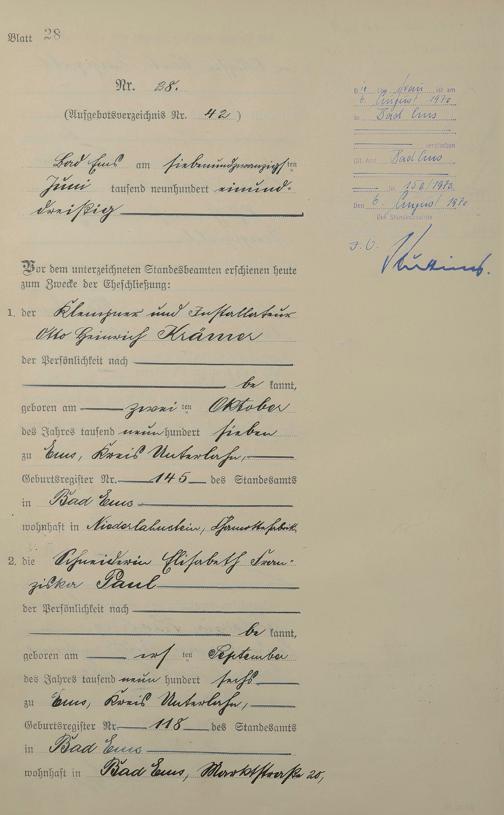 Blatt 28
Nr. 28.
(Aufgebotsverzeichnis Nr. 42)
Bad Ems am siebenundzwanzigsten
Juni tausend neunhundert einund-
dreißig
Vor dem unterzeichneten Standesbeamten erschienen heute
zum Zwecke der Eheschließung:
1. der Klempner und Installateur
Otto Heinrich Krämer
der Persönlichkeit nach
be kannt,
geboren am zwei ten Oktober
des Jahres tausend neun hundert sieben
zu Ems, Kreis Unterlahn,
Geburtsregister Nr. 145 des Standesamts
in Bad Ems
wohnhaft in Niederlahnstein, Chamottefabrik
2. die Schneiderin Elisabeth Fran-
ziska Paul
der Persönlichkeit nach
be kannt,
geboren am ers ten September
des Jahres tausend neun hundert sechs
zu Ems, Kreis Unterlahn,
Geburtsregister Nr. 118 des Standesamts
in Bad Ems
wohnhaft in Bad Ems, Marktstraße 20,
Frau ist am
6. August 1970
in Bad Ems
verstorben
Bad Ems
Nr. 150/1970.
Den 6. August 1970
Der Standesbeamte